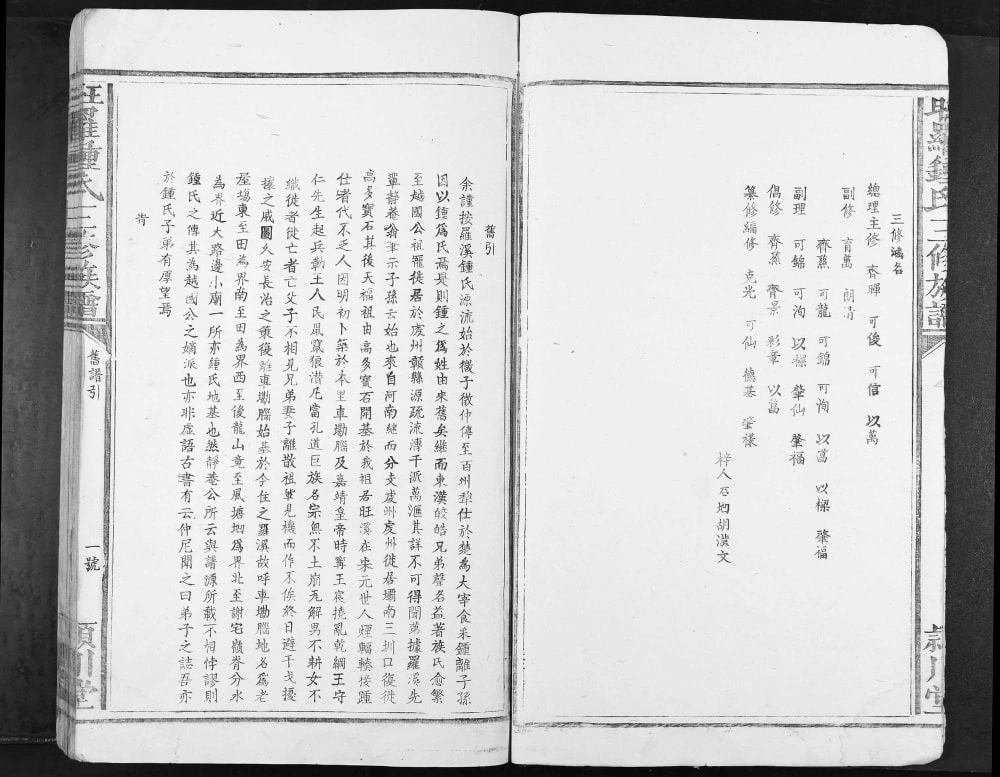 三修鴻名
總理主修　齊暉　可俊　可信　以萬
副修　育萬　朗清
齊蕉　可龍　可錦　可洵　以蒿　以樑　肇福
副理　可錦　可洵　以樑　肇仙　肇福
倡修　齊蕉　齊景　彩章　以蒿
纂修編修　克光　可仙　德基　瑩禄
梓人石坳胡濱文
羅鍾氏三修族譜
潁川堂
舊引
余謹按羅溪鍾氏源流始於微子微仲傳至百州犁仕於楚爲大宰食采鍾離子孫
因以鍾爲氏焉是則鍾之爲姓由來舊矣繼而東漢皎皓兄弟聲名益著族氏愈繁
至越國公祖寵徙居於虔州贛縣源疏流溥千派萬滙其詳不可得聞第據羅溪先
輩靜菴翁筆示子孫云始也來自河南繼而分支虔州虔州徙居壩南三圳口復徙
高多寶石其後天福祖由高多寶石開基於我祖居旺溪在宋元世人煙輻輳接踵
仕者代不乏人因明初卜築於本里車坳腦及嘉靖皇帝時寧王宸撓亂乾綱王守
仁先生起兵勤王人民鼠竄狼潛凡當孔道巨族名宗無不土崩瓦解男不耕女不
織徙者徙亡者亡父子不相見兄弟妻子離散祖輩見機而作不俟終日避干戈擾
攘之戚圖久安長治之策復離車坳腦始基於今住之羅溪故呼車坳腦地名爲老
屋場東至田為界南至田為界西至後龍山竟至風塘坳爲界北至謝宅嶺脊分水
為界近大路邊小廟一所亦鍾氏地基也然靜菴公所云與譜源所載不相悖謬則
鍾氏之傳其為越國公之嫡派也亦非虛語古書有云仲尼聞之曰弟子之誌吾亦
於鍾氏子弟有厚望焉
旹
旺羅鍾氏三修族譜
舊譜引
一號
潁川堂